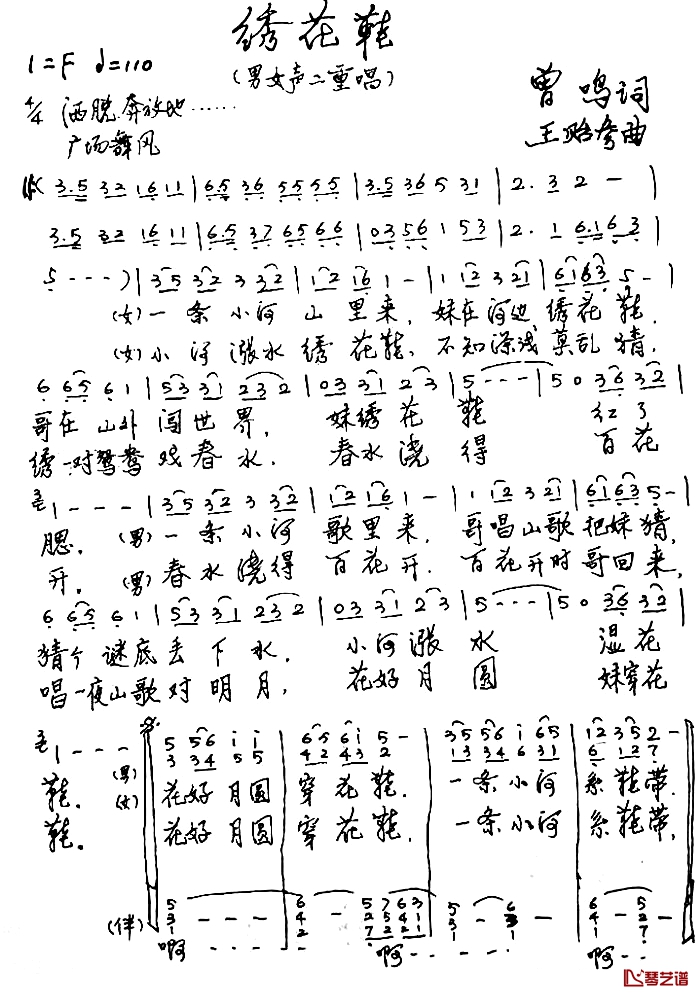 绣花鞋
1=F ♩=110
(男女声二重唱)
4/4 洒脱.奔放地……
广场舞风
曾鸣词
王贻彦曲
3.5 32 16 11 | 6.5 36 55 55 | 3.5 36 5 31 | 2. 3 2 - |
3.5 32 16 11 | 6.5 37 65 66 | 035 61 53 | 2. 1 6.1 63 |
5 - - - ) | 35 32 3 32 | 12 16 1 - | 1 12 3 21 | 61 63 5 - |
(女) 一条小河山里来，妹在河边绣花鞋，
(女) 小河涨水绣花鞋，不知深浅莫乱猜，
6 65 6 1 | 53 31 23 2 | 03 31 2 3 | 5 - - - | 5 0 36 32 |
哥在山外闯世界，妹绣花鞋红了
绣一对鸳鸯戏春水．春水浇得百花
1 - - - | 35 32 3 32 | 12 16 1 - | 1 12 3 21 | 61 63 5 -
腮．(男)一条小河歌里来，哥唱山歌把妹猜，
开．(男)春水浇得百花开．百花开时哥回来，
6 65 6 1 | 53 31 23 2 | 03 31 2 3 | 5 - - - | 5 0 36 32 |
猜个谜底丢下水．小河涨水湿花
唱一夜山歌对明月，花好月圆妹穿花
1 - - - 5 56 i i | 65 6i 5 - | 35 56 i 65 | 12 35 2 -
3 34 5 5 | 42 43 2 | 13 34 6 31 | 6 12 7
鞋．(男)花好月圆穿花鞋．一条小河系鞋带．
鞋．(女)花好月圆穿花鞋，一条小河系鞋带，
(伴)
啊 - - - - 啊 - - - -
琴艺谱